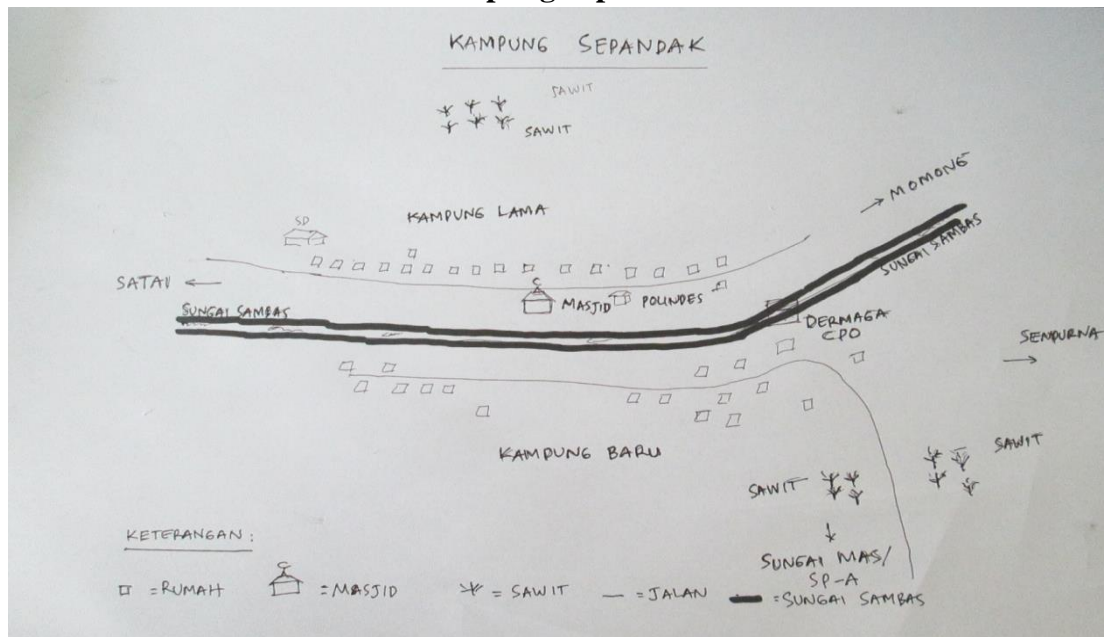 KAMPUNG SEPANDAK
SAWIT
SAWIT
MOMONG
KAMPUNG LAMA
SD
SATAI
SUNGAI SAMBAS
MASJID
POLINDES
SUNGAI SAMBAS
DERMAGA
CPO
SENDURNA
KAMPUNG BARU
SAWIT
SAWIT
SUNGAI MAS/
SP-A
KETERANGAN :
= RUMAH
= MASJID
= SAWIT
= JALAN
= SUNGAI SAMBAS